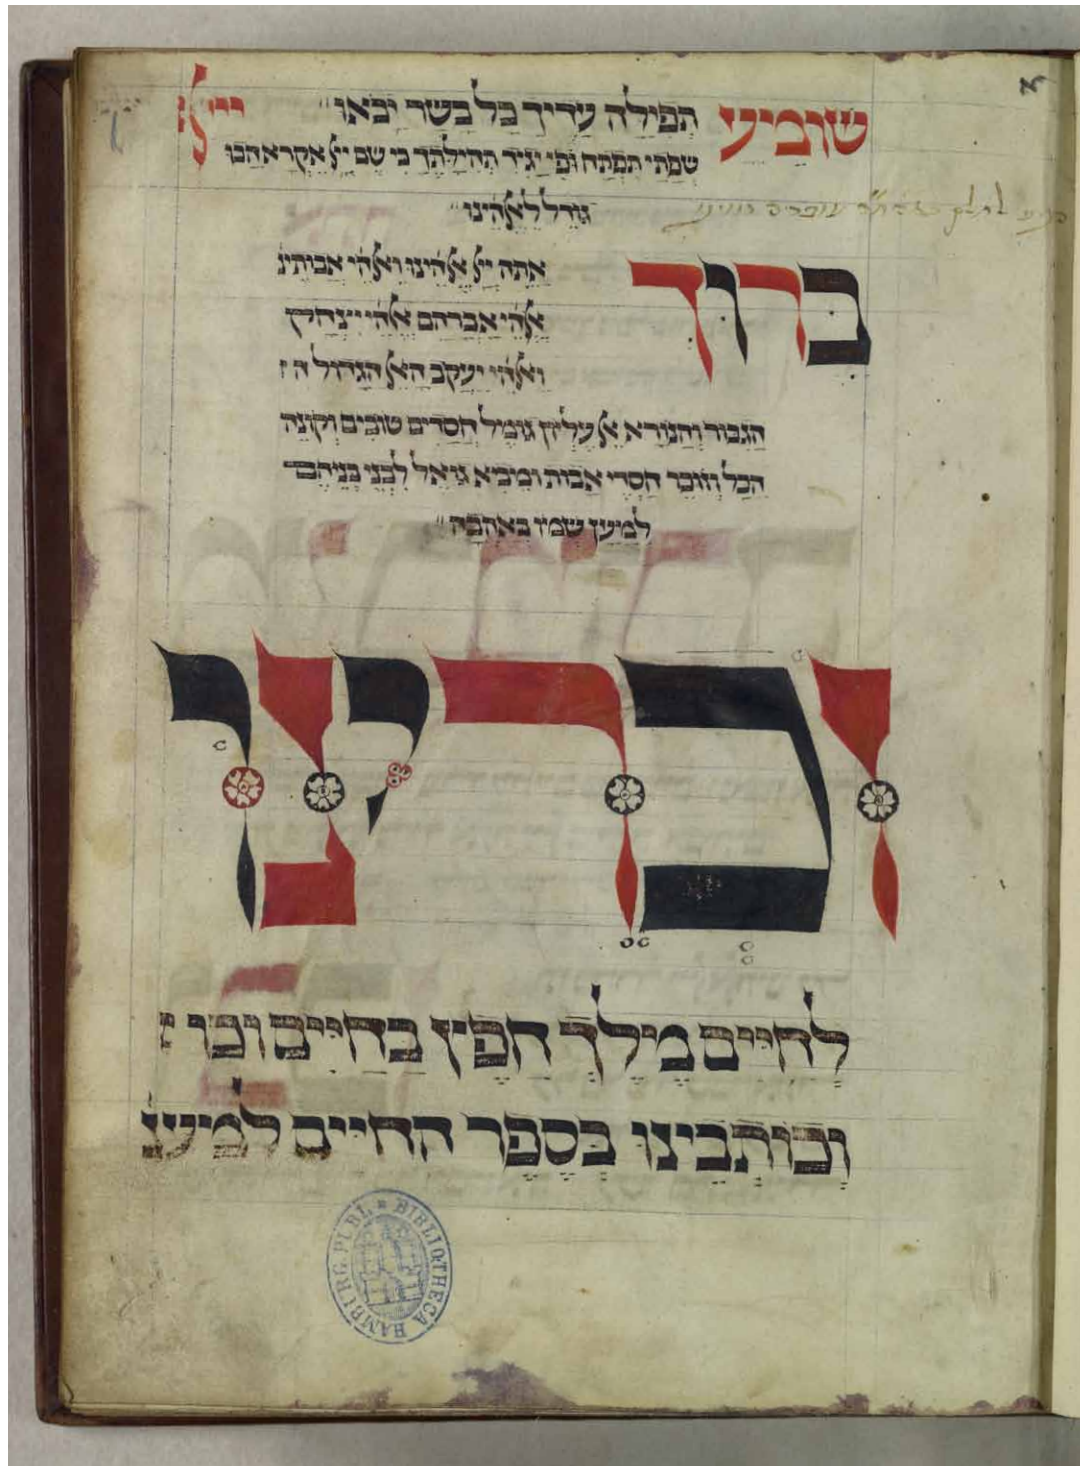 א
שומיע תפילה עדיך כל בשר יבאו ייי
שפתי תפתח ופי יגיד תהילתך כי שם ייי אקרא הבו
גודל לאלהינו
ברוך אתה ייי אלהינו ואלהי אבותינ
אלהי אברהם אלהי יצחק
ואלהי יעקב האל הגדול ה
הגבור והנורא אל עליון גומיל חסדים טובים וקונה
הכל וזוכר חסדי אבות ומיביא גויאל לבני בניהם
למיען שמו באהבה
זכרינו
לחיים מילך חפץ בחיים וכו
וכותבינו בספר החיים למיענ
BIBLIOTHECA HAMBURG. PUBL.